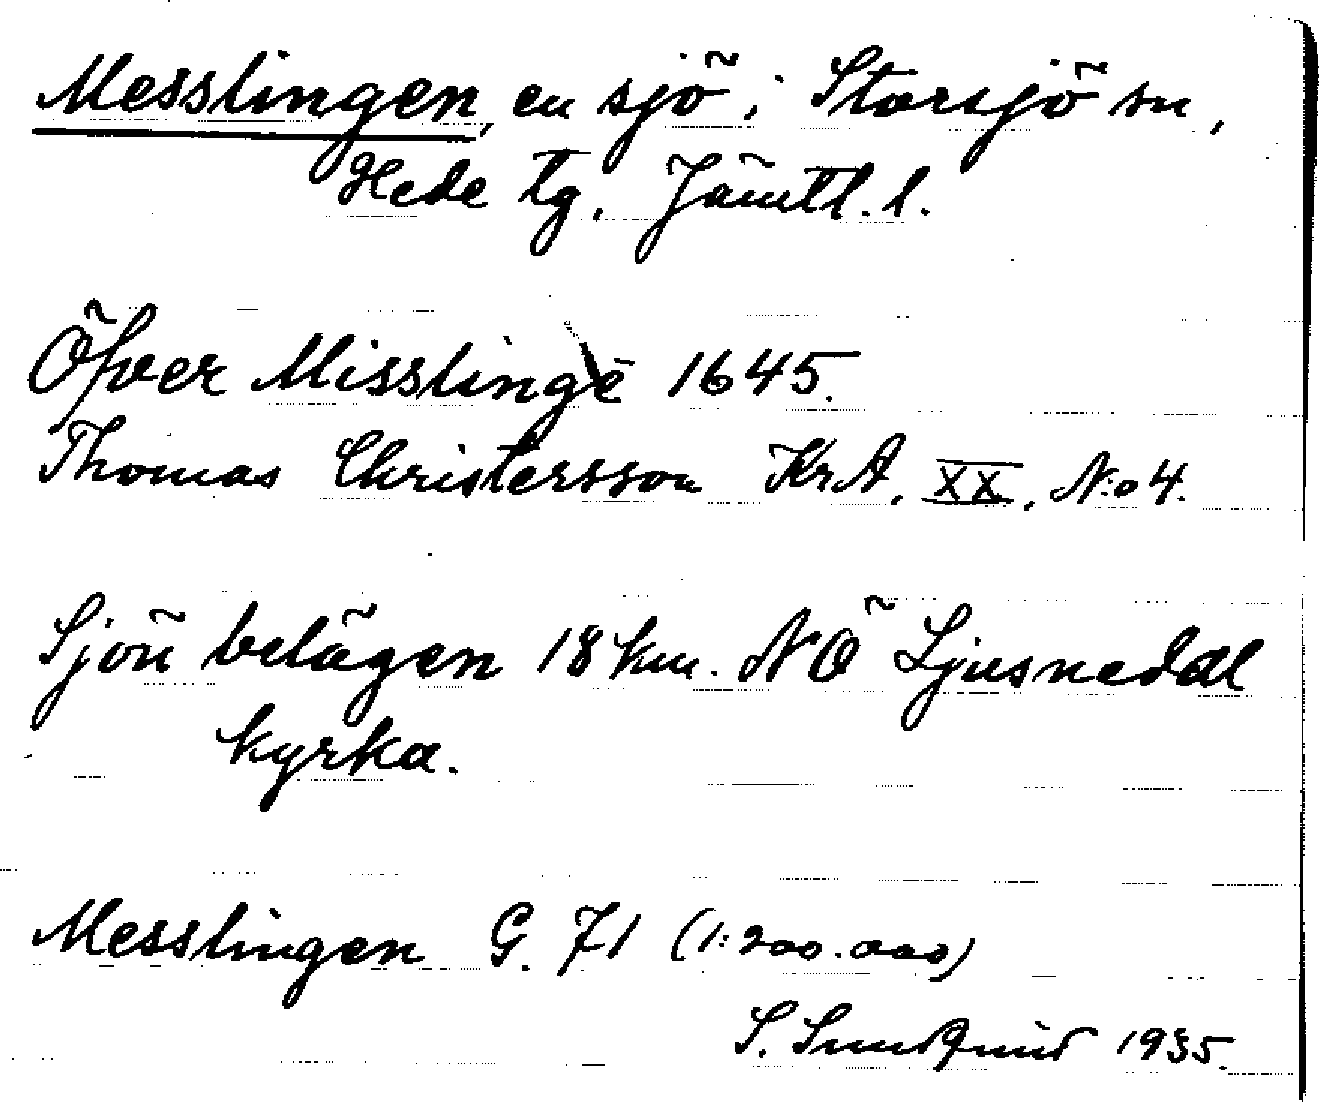 Messlingen, en sjö i Storsjö sn,
Hede tg, Jämtl. l.
Öfver Misslinge 1645.
Thomas Christersson KrA, XX, N:o 4.
Sjön belägen 18 km. NÖ Ljusnedal
kyrka.
Messlingen G. 71 (1:200.000)
S. Sundqvist 1935.